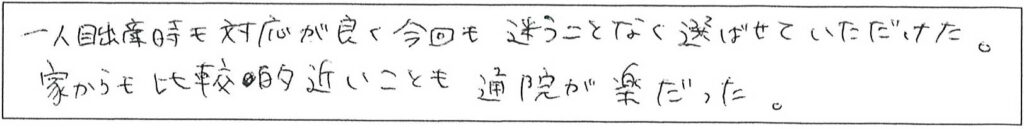 一人目出産時も対応が良く今回も迷うことなく選ばせていただけた。
家からも比較的近いことも通院が楽だった。